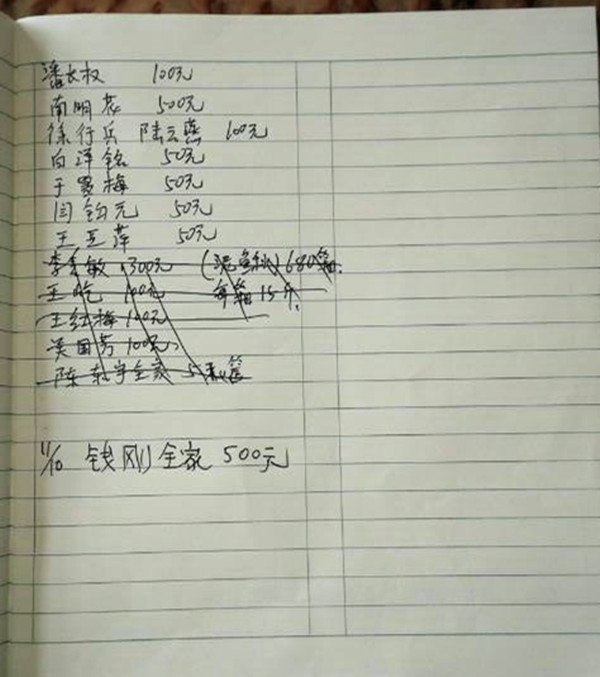 潘长权 100元
南明花 500元
徐行兵 陆云燕 100元
白洋铭 50元
于翠梅 50元
闫钧元 50元
王玉萍 50元
李敏 300元 (泥鱼秋) 680箱.
王 100元 每箱15斤.
王红梅 100元
吴国芳 100元
陈东宇全家
11/10 钱刚全家 500元